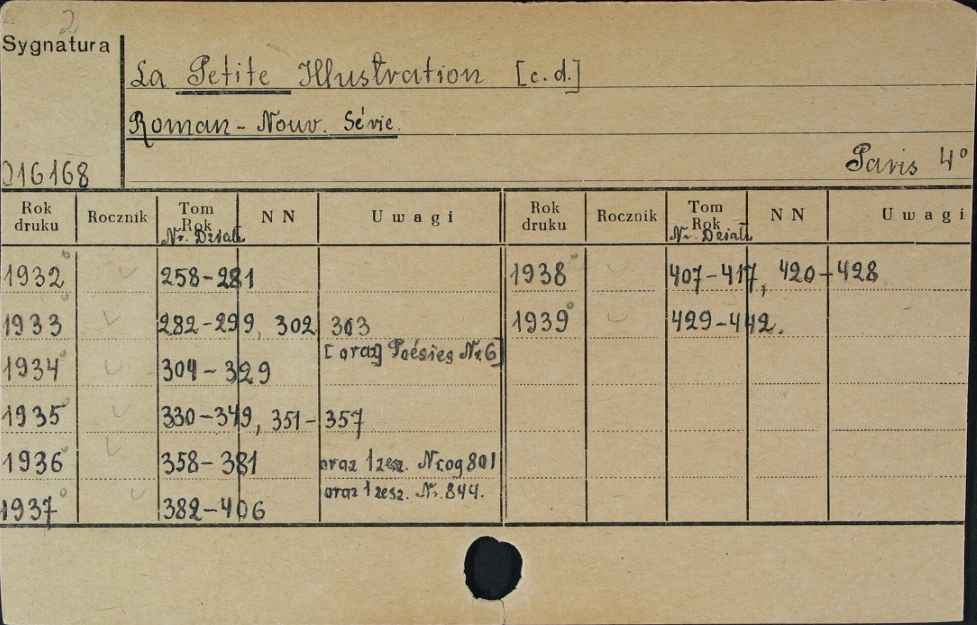 2
Sygnatura
La Petite Illustration [c.d.]
Roman - Nouv. Série.
016168
Paris 4°
Rok druku Rocznik Tom Rok Nr. Działu N N Uwagi Rok druku Rocznik Tom Rok Nr. Działu N N Uwagi
1932° 258-281 1938° 407-417, 420-428
1933° 282-299, 302 303 1939° 429-442.
[oraz Poésies Nr. 6]
1934° 304-329
1935° 330-349, 351-357
1936° 358-381 oraz 1 zesz. Nr. og 801
1937° 382-406 oraz 1 zesz. Nr. 844.